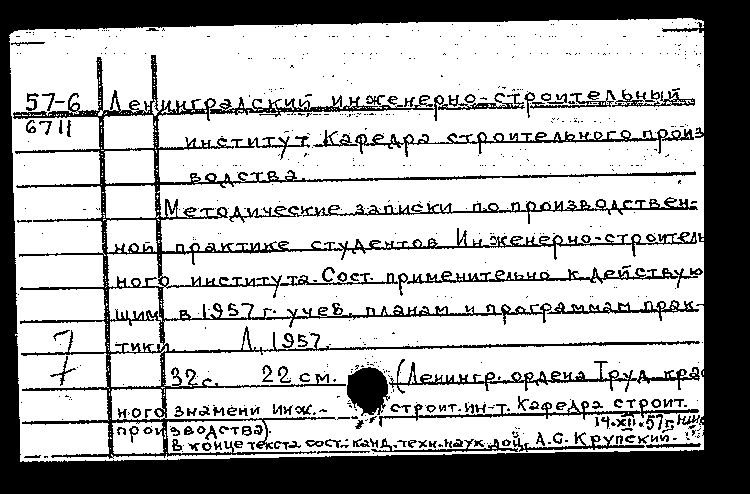 57-6 Ленинградский инженерно-строительный
6711
институт. Кафедра строительного произ
водства.
Методические записки по производствен-
ной практике студентов Инженерно-строитель
ного института. Сост. применительно к действую
щим в 1957 г. учеб. планам и программам прак-
тики. Л., 1957.
7
32 с. 22 см. (Ленингр. ордена Труд. крас
ного знамени инж.- строит. ин-т. Кафедра строит.
производства).
14.XII.57г.
В конце текста сост.: канд. техн. наук доц. А.С. Крупский.